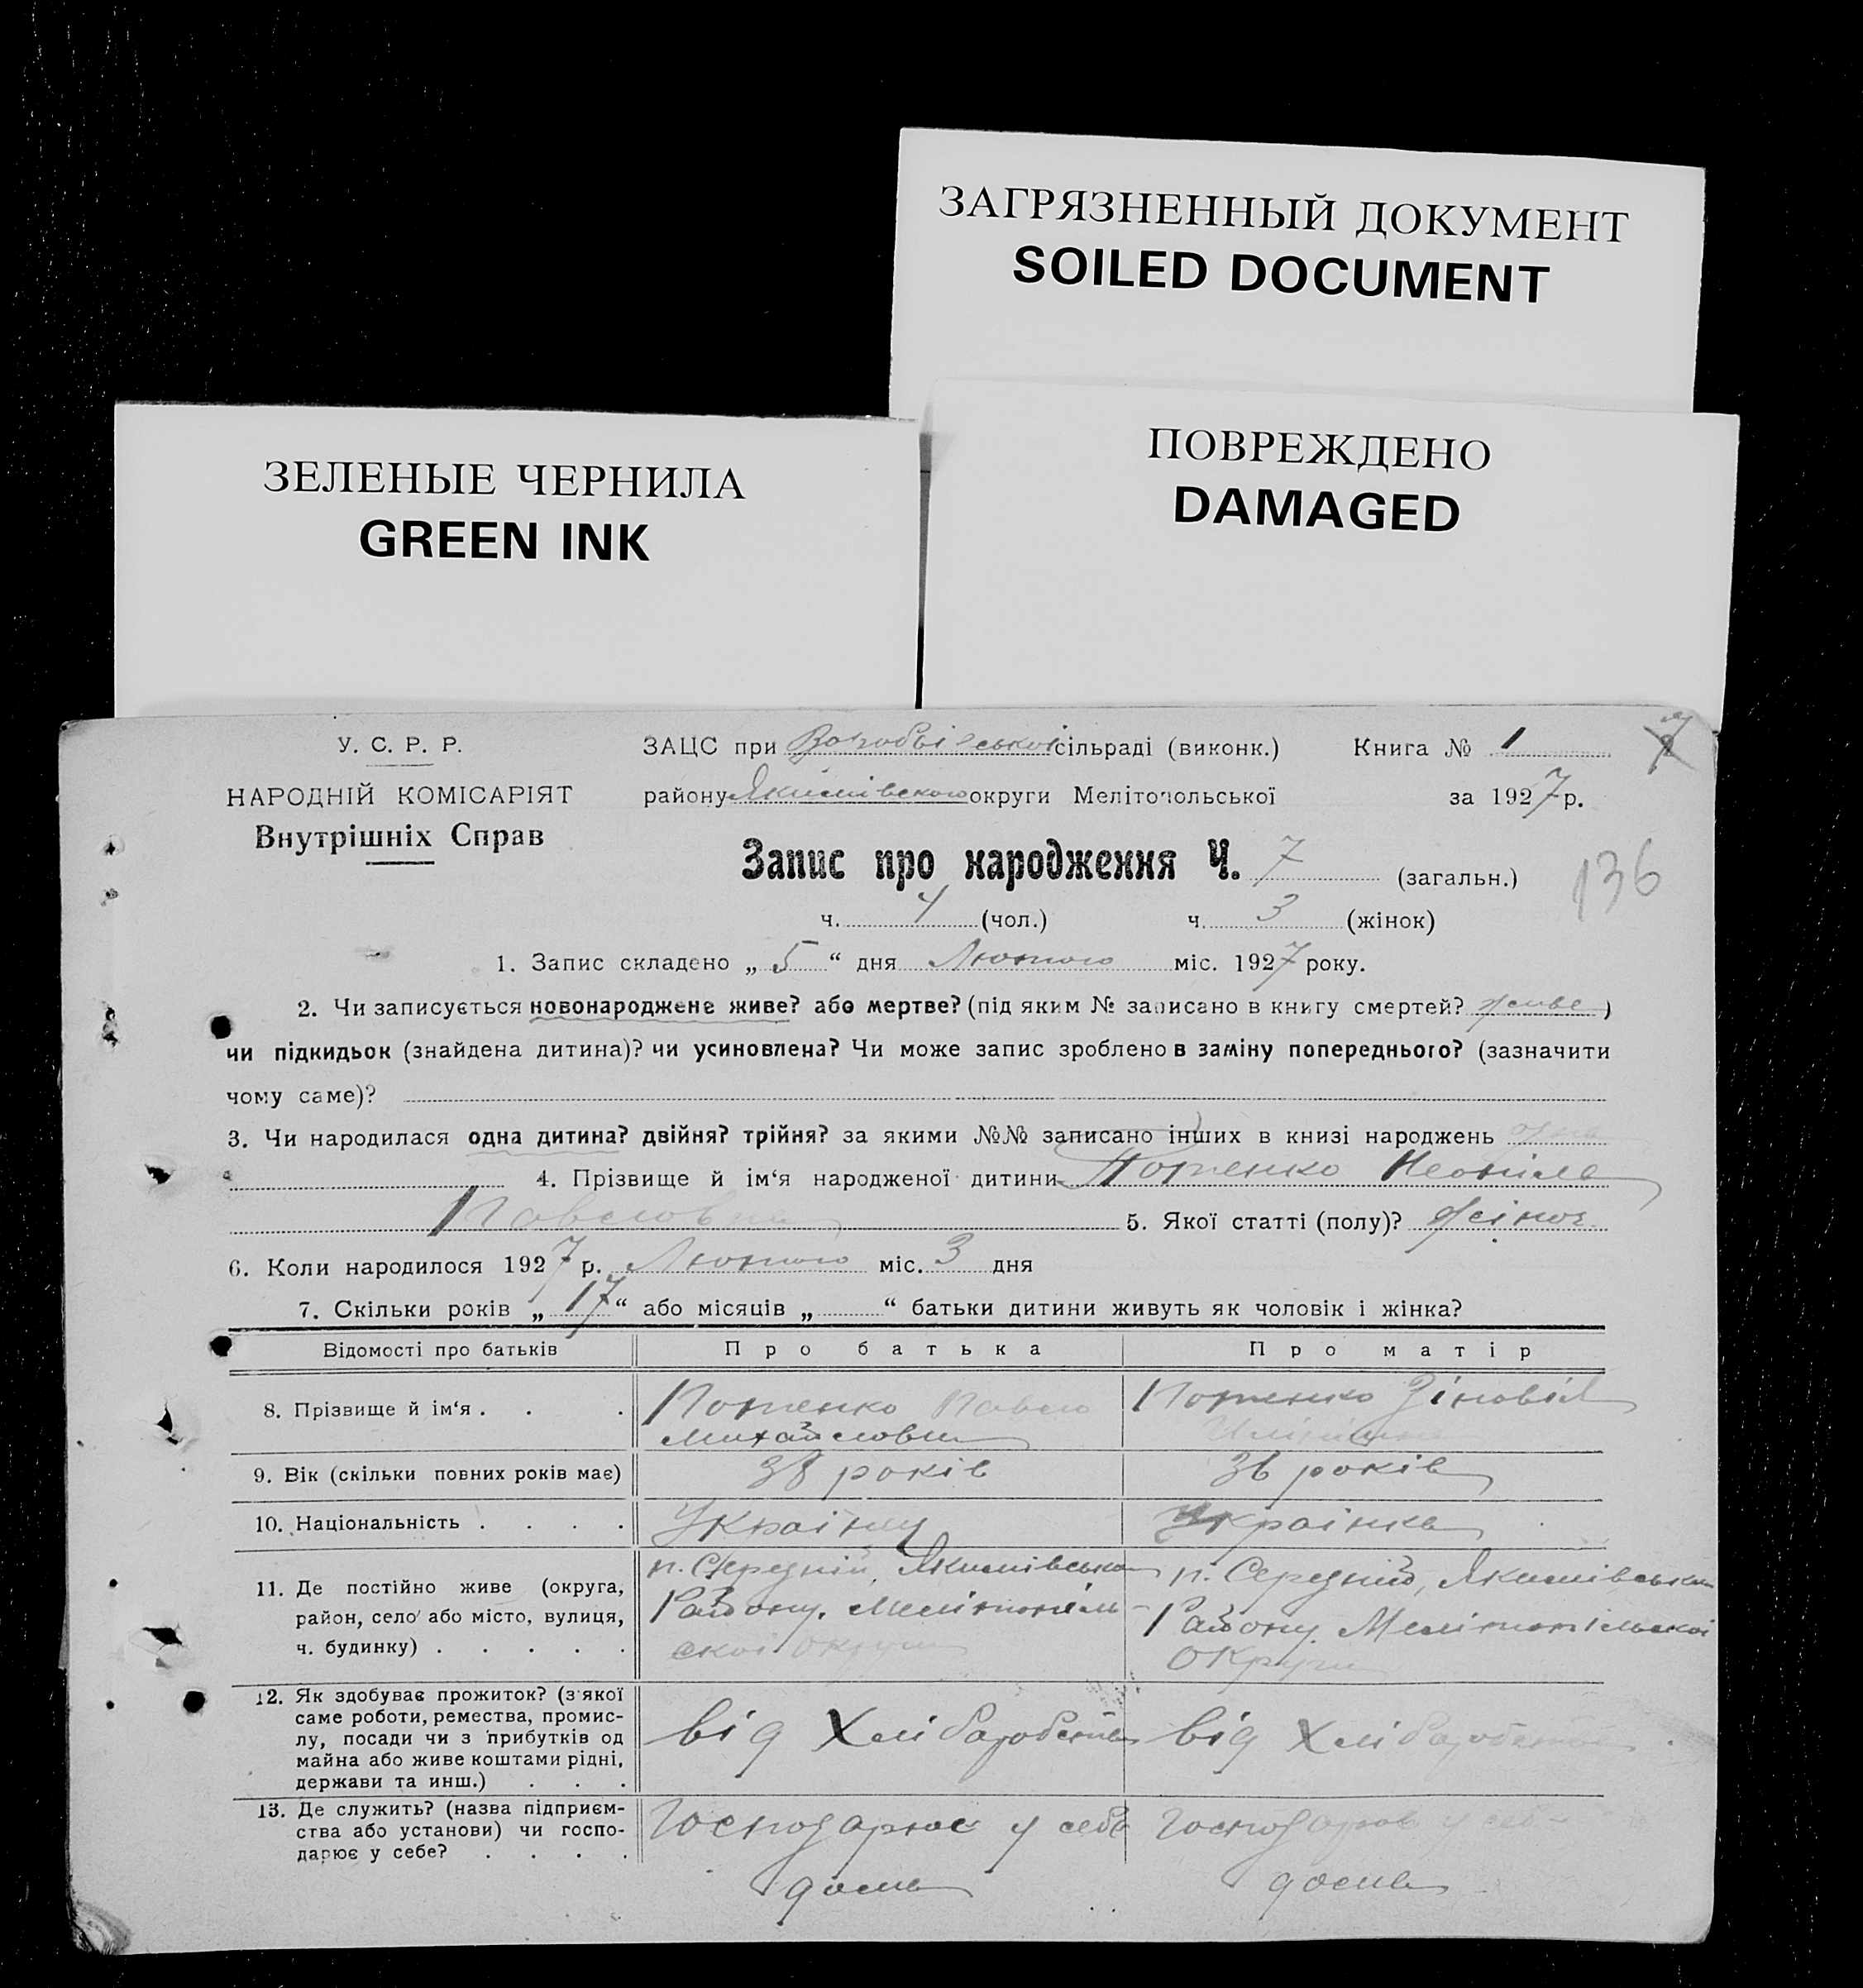 ЗАГРЯЗНЕННЫЙ ДОКУМЕНТ
SOILED DOCUMENT
ЗЕЛЕНЫЕ ЧЕРНИЛА
GREEN INK
ПОВРЕЖДЕНО
DAMAGED
У. С. Р. Р.
НАРОДНІЙ КОМІСАРІЯТ
Внутрішніх Справ
ЗАЦС при сільраді (виконк.) Книга № 1
району Якимівського округи Мелітопольської за 1927 р.
Запис про народження Ч. 7 (загальн.)
136
ч. 4 (чол.) ч. 3 (жінок)
1. Запис складено „ 5 “ дня Лютого міс. 1927 року.
2. Чи записується новонароджене живе? або мертве? (під яким № записано в книгу смертей? живе )
чи підкидьок (знайдена дитина)? чи усиновлена? Чи може запис зроблено в заміну попереднього? (зазначити
чому саме)?
3. Чи народилася одна дитина? двійня? трійня? за якими №№ записано інших в книзі народжень
4. Прізвище й ім‘я народженої дитини
Павловна 5. Якої статті (полу)? жіноч.
6. Коли народилося 1927 р. Лютого міс. 3 дня
7. Скільки років „ 17 “ або місяців „ “ батьки дитини живуть як чоловік і жінка?
Відомості про батьків Про батька Про матір
8. Прізвище й ім‘я . . . Потенко Павло Потенко Зіновія
Михайлович
9. Вік (скільки повних років має) 38 років 36 років
10. Національність . . . . Українец Українка
11. Де постійно живе (округа, район, село або місто, вулиця, ч. будинку) . . . . .
п. Середній, Якимівсько Району, Мелітопільської округи
п. Середній, Якимівсько Району Мелітопільської Округи
12. Як здобуває прожиток? (з якої
саме роботи, ремества, промис-
лу, посади чи з прибутків од
майна або живе коштами рідні,
держави та инш.) . . .
від Хліборобства від Хліборобства
13. Де служить? (назва підприєм-
ства або установи) чи госпо-
дарює у себе? . . . .
Господарює у себе дома
Господарює у себе дома